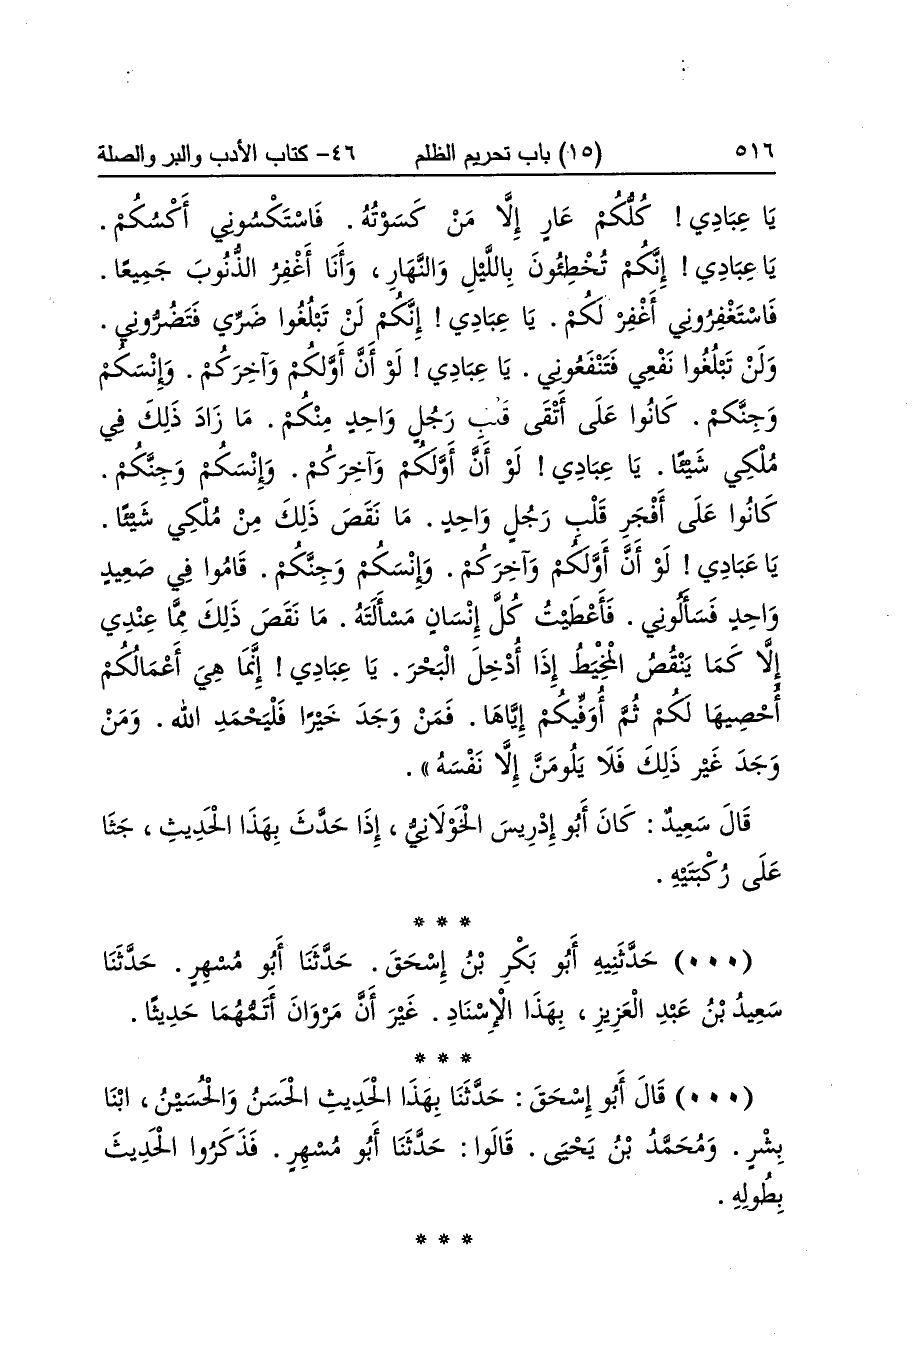 ٥١٦ (١٥) باب تحريم الظلم ٤٦- كتاب الأدب والبر والصلة
يَا عِبَادِي ! كُلُّكُمْ عَارٍ إِلَّا مَنْ كَسَوْتُهُ . فَاسْتَكْسُونِي أَكْسُكُمْ .
يَا عِبَادِي ! إِنَّكُمْ تُخْطِئُونَ بِاللَّيْلِ وَالنَّهَارِ ، وَأَنَا أَغْفِرُ الذُّنُوبَ جَمِيعًا .
فَاسْتَغْفِرُونِي أَغْفِرْ لَكُمْ . يَا عِبَادِي ! إِنَّكُمْ لَنْ تَبْلُغُوا ضَرِّي فَتَضُرُّونِي .
وَلَنْ تَبْلُغُوا نَفْعِي فَتَنْفَعُونِي . يَا عِبَادِي ! لَوْ أَنَّ أَوَّلَكُمْ وَآخِرَكُمْ . وَإِنْسَكُمْ
وَجِنَّكُمْ . كَانُوا عَلَى أَتْقَى قَلْبِ رَجُلٍ وَاحِدٍ مِنْكُمْ . مَا زَادَ ذَلِكَ فِي
مُلْكِي شَيْئًا . يَا عِبَادِي ! لَوْ أَنَّ أَوَّلَكُمْ وَآخِرَكُمْ . وَإِنْسَكُمْ وَجِنَّكُمْ .
كَانُوا عَلَى أَفْجَرِ قَلْبِ رَجُلٍ وَاحِدٍ . مَا نَقَصَ ذَلِكَ مِنْ مُلْكِي شَيْئًا .
يَا عَبَادِي ! لَوْ أَنَّ أَوَّلَكُمْ وَآخِرَكُمْ . وَإِنْسَكُمْ وَجِنَّكُمْ . قَامُوا فِي صَعِيدٍ
وَاحِدٍ فَسَأَلُونِي . فَأَعْطَيْتُ كُلَّ إِنْسَانٍ مَسْأَلَتَهُ . مَا نَقَصَ ذَلِكَ مِمَّا عِنْدِي
إِلَّا كَمَا يَنْقُصُ الْمِخْيَطُ إِذَا أُدْخِلَ الْبَحْرَ . يَا عِبَادِي ! إِنَّمَا هِيَ أَعْمَالُكُمْ
أُحْصِيهَا لَكُمْ ثُمَّ أُوَفِّيكُمْ إِيَّاهَا . فَمَنْ وَجَدَ خَيْرًا فَلْيَحْمَدِ الله . وَمَنْ
وَجَدَ غَيْر ذَلِكَ فَلَا يَلُومَنَّ إِلَّا نَفْسَهُ » .
قَالَ سَعِيدٌ : كَانَ أَبُو إِدْرِيسَ الْخَوْلَانِيُّ ، إِذَا حَدَّثَ بِهَذَا الْحَدِيثِ ، جَثَا
عَلَى رُكْبَتَيْهِ .
* * *
(٠٠٠) حَدَّثَنِيهِ أَبُو بَكْرِ بْنُ إِسْحَقَ . حَدَّثَنَا أَبُو مُسْهِرٍ . حَدَّثَنَا
سَعِيدُ بْنُ عَبْدِ الْعَزِيزِ ، بِهَذَا الْإِسْنَادِ . غَيْرَ أَنَّ مَرْوَانَ أَتَمُّهُمَا حَدِيثًا .
* * *
(٠٠٠) قَالَ أَبُو إِسْحَقَ : حَدَّثَنَا بِهَذَا الْحَدِيثِ الْحَسَنُ وَالْحُسَيْنُ ، ابْنَا
بِشْرٍ . وَمُحَمَّدُ بْنُ يَحْيَى . قَالُوا : حَدَّثَنَا أَبُو مُسْهِرٍ . فَذَكَرُوا الْحَدِيثَ
بِطُولِهِ .
* * *